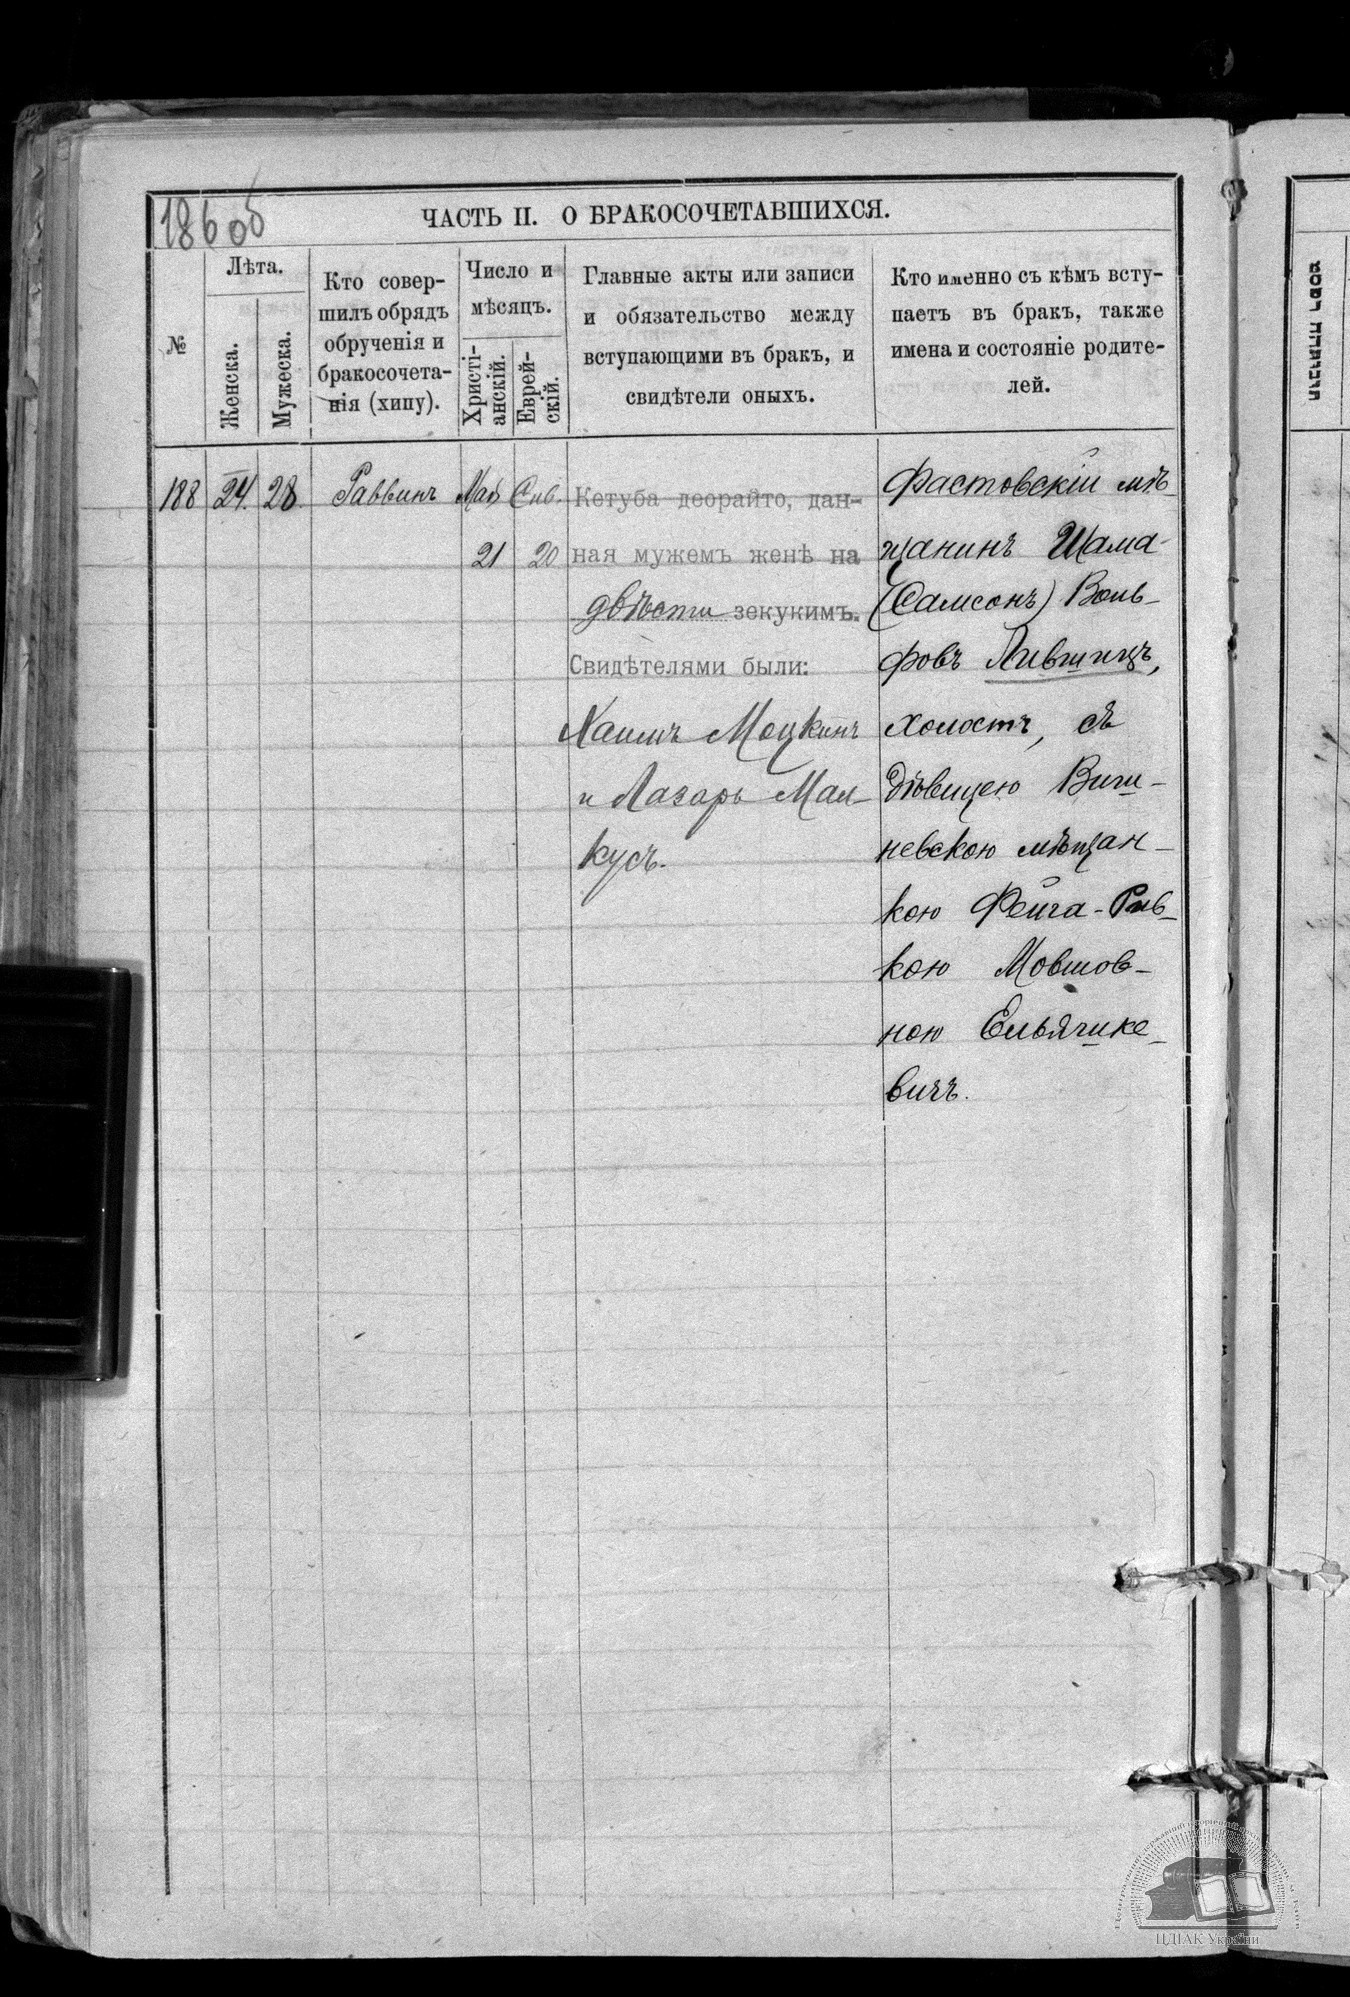 186 об
ЧАСТЬ II. О БРАКОСОЧЕТАВШИХСЯ.
№
Лѣта.
Женска.
Мужеска.
Кто совер-
шилъ обрядъ
обрученія и
бракосочета-
нія (хипу).
Число и
мѣсяцъ.
Христі-
анскій.
Еврей-
скій.
Главные акты или записи
и обязательство между
вступающими въ бракъ, и
свидѣтели оныхъ.
Кто именно съ кѣмъ всту-
паетъ въ бракъ, также
имена и состояніе родите-
лей.
188
24.
28.
Раввинъ
Май
21
Сив.
20
Кетуба деорайто, дан-
ная мужемъ женѣ на
двѣсти зекукимъ.
Свидѣтелями были:
Хаимъ Моцкинъ
и Лазарь Мал-
кусъ.
Фастовскій мѣ-
щанинъ Шама-
(Самсонъ) Воль-
фовъ Лившицъ,
холостъ, съ
дѣвицею Виш-
невскою мѣщан-
кою Фейга-Рив-
кою Мовшов-
ною Ельяшке-
вичъ.
ЦДІАК України